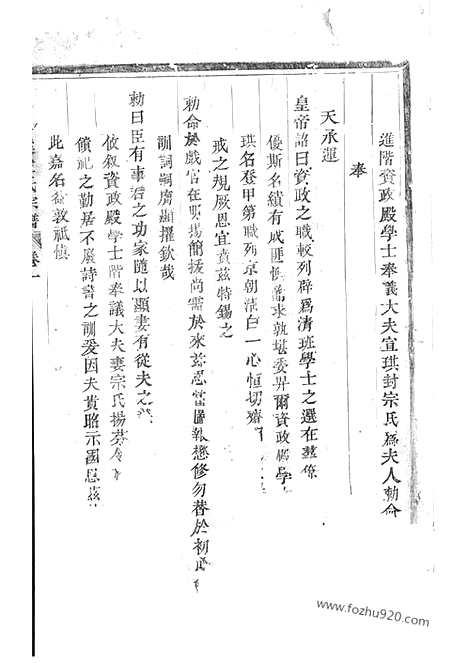 進階資政殿學士奉義大夫宣琪封宗氏為夫人勅命
奉
天承運
皇帝詔曰資政之職較列辟為清班學士之選在羣僚
優斯名績有成匪懈求孰堪委畀爾資政殿學
琪名登甲第職列京朝清白一心恒切
戒之規厥恩宜賁茲特錫之
勅命於戲官在明揚簡拔尚需於來茲恩當圖報懋修勿替於初
訓詞嗣膺顯擢欽哉
勅曰臣有事君之功家隨以顯妻有從夫之
依叙資政殿學士階奉議大夫妻宗氏揚芬
饋祀之勤居不廢詩書之訓爰因夫貴昭示國恩茲
此嘉名益敦祗慎
氏宗譜 卷一
www.fozhu920.com